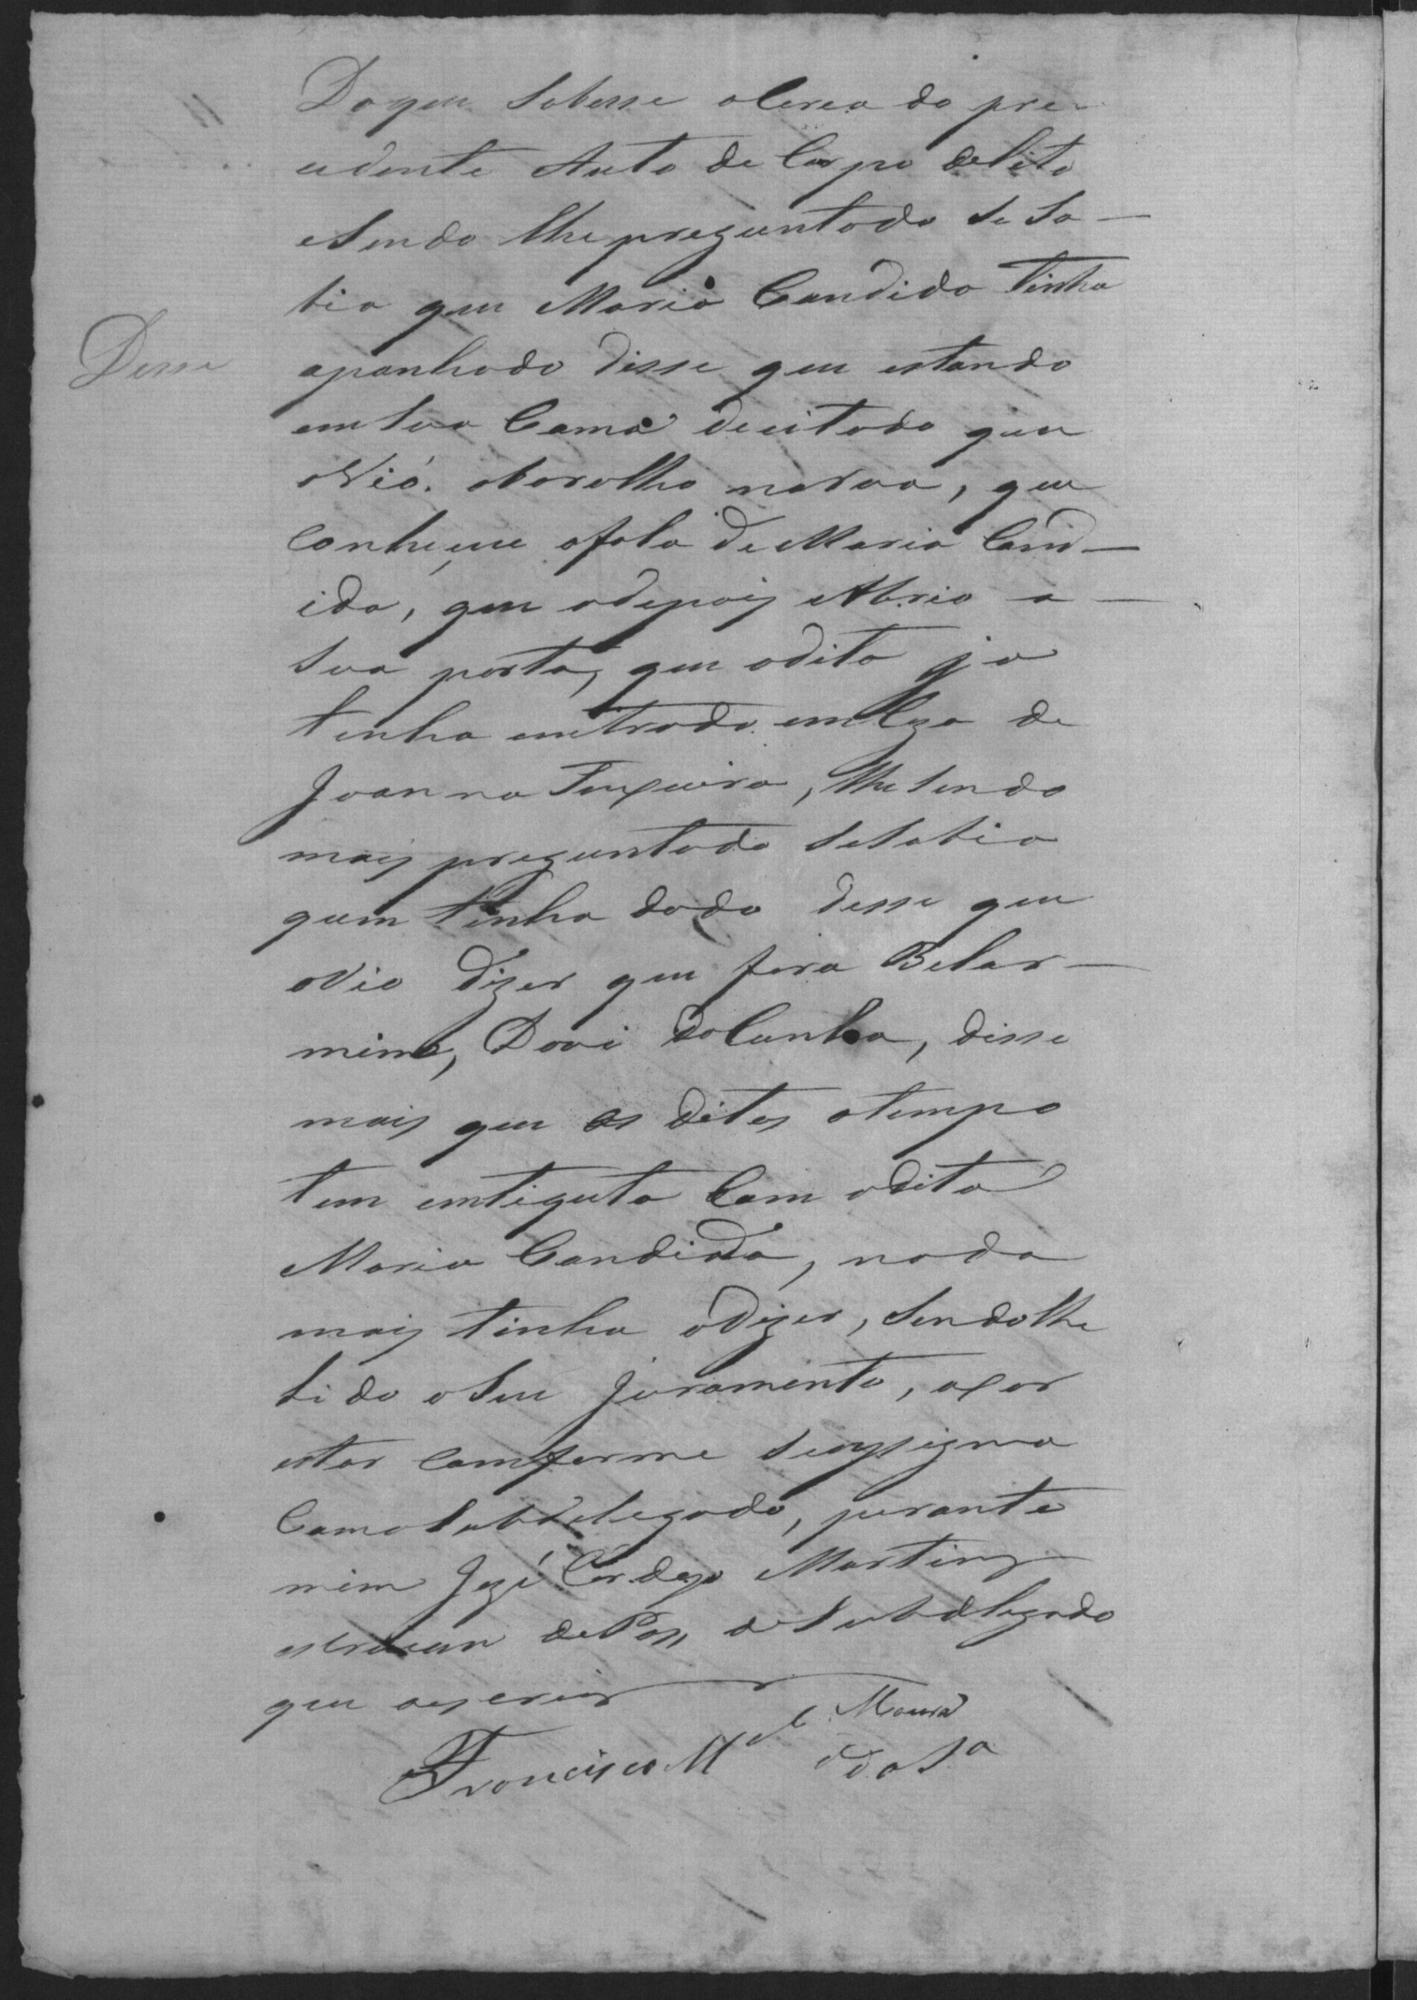 Doque Sobesse aserca do pre-
cedente Auto de Corpo delito
eSendo lhe preguntado se Sa-
bia que Maria Candida tinha
Desse
apanhado disse que estando
em Sua Cama deitado que
oVió. obarolho narua, que
Conheceu afala de Maria Cand-
ida, que adepois Abrio a
Sua porta, que adita ja
tinha emtrado em Caza de
Joanna Teixeira, lhe Sendo
mais preguntado SeSabia
quem tinha dado desse que
oVio dizer que fora Belar-
mino, Davi da Cunha, disse
mais que os ditos atempo
tem emtiguta Com adita
Maria Candida, nada
mais tinha aDizer, Sendolhe
lido oSeu juramento, apor
estar Comforme
ComoSubdelegado, perante
mim Jozé Martins
escrivam dePas, deSubdelegado
que oescrevi
Francisco Mel Moura